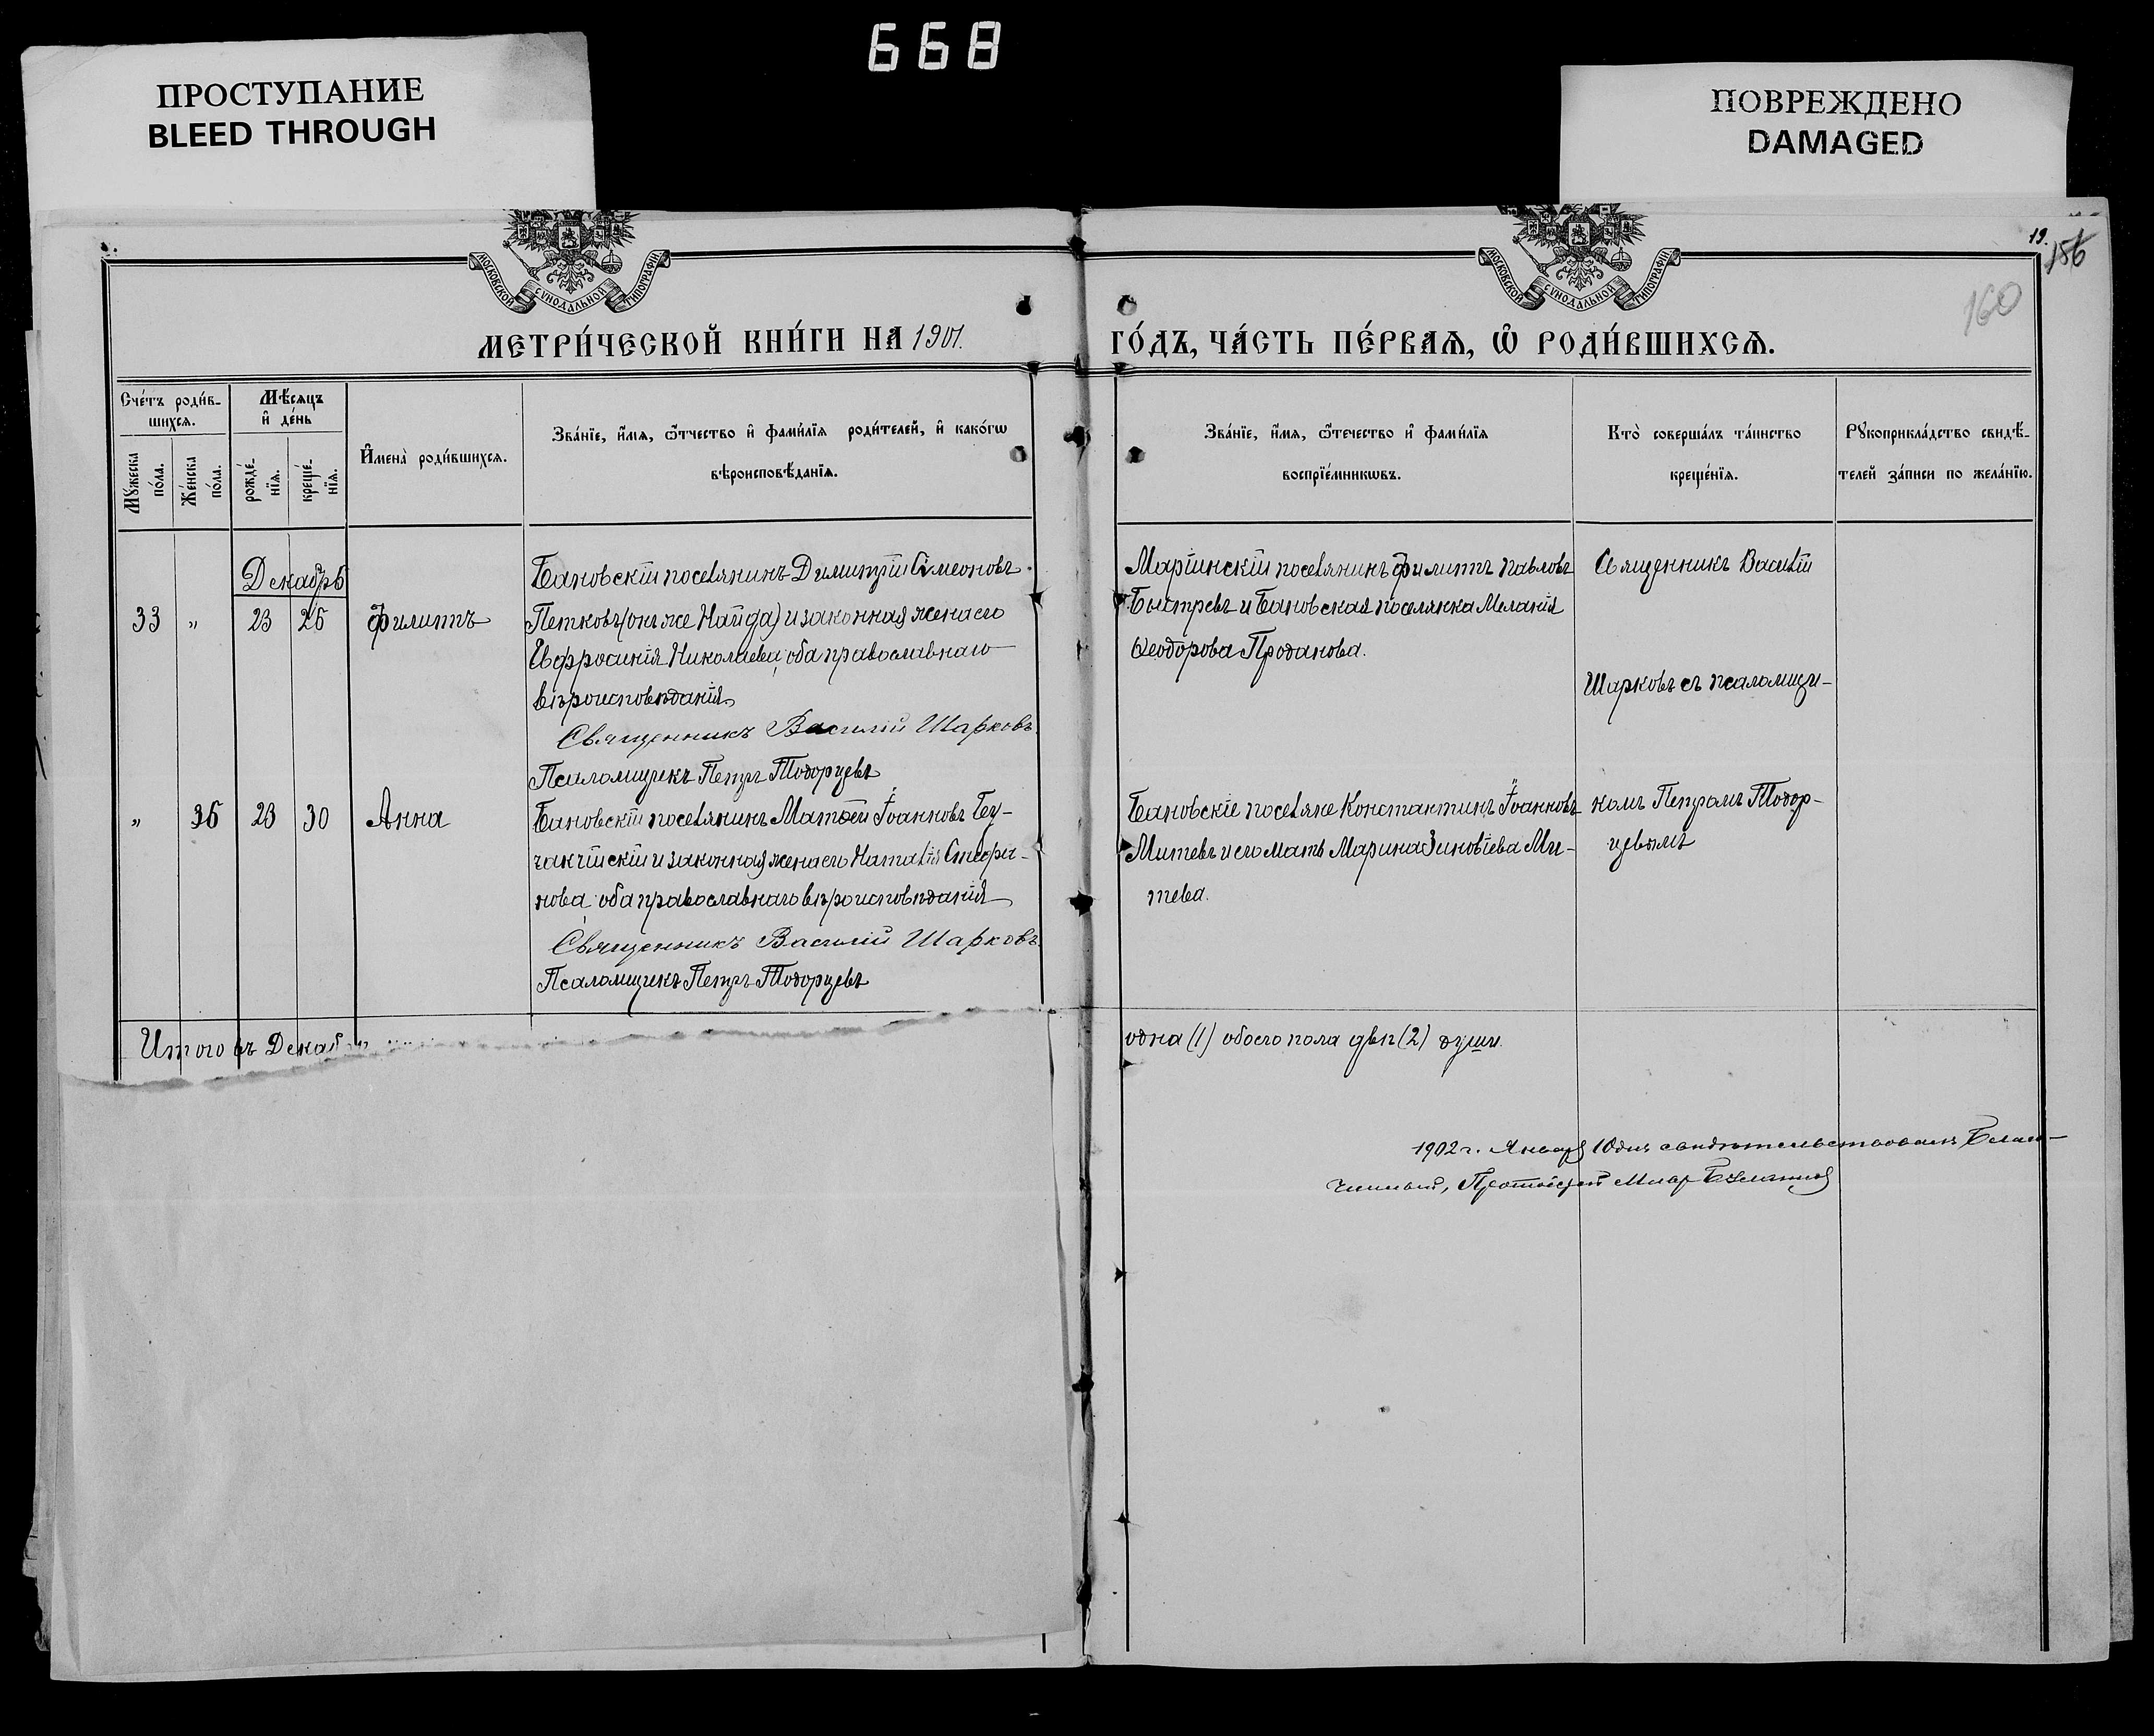 668
ПРОСТУПАНИЕ
BLEED THROUGH
ПОВРЕЖДЕНО
DAMAGED
МОСКОВСКОЙ СѴНОДАЛЬНОЙ ТИПОГРАФІИ
МОСКОВСКОЙ СѴНОДАЛЬНОЙ ТИПОГРАФІИ
19.
156
160
МЕТРИ́ЧЕСКОЙ КНИ́ГИ НА 1901.
ГО́ДЪ, ЧА́СТЬ ПЕ́РВАѦ, Ѡ РОДИ́ВШИХСѦ.
Сче́тъ роди́в-
шихсѧ.
Мꙋ́жеска по́ла.
Же́нска по́ла.
Мѣ́сѧцъ
и҆ де́нь
рожде́-
нїѧ.
креще́-
нїѧ.
И҆мена̀ роди́вшихсѧ.
Зва́нїе, и҆́мѧ, ѻ҆́тчество и҆ фами́лїѧ роди́телей, и҆ како́гѡ
вѣроисповѣ́данїѧ.
Зва́нїе, и҆́мѧ, ѻ҆те́чество и҆ фами́лїѧ
воспрїе́мникѡвъ.
Кто̀ соверша́лъ та́инство
креще́нїѧ.
Рꙋкоприкла́дство свидѣ́-
телей за́писи по жела́нїю.
Декабрь
33 „ 23 26 Филиппъ
Бановскій поселянинъ Димитрій Симеоновъ
Петковъ (онъ же Найда) и законная жена его
Ифросинія Николаева, оба православнаго
вѣроисповѣданія
Священникъ Василій Шарковъ
Псаломщикъ Петръ Тодорцевъ
Маріинскій поселянинъ Филиппъ Павловъ
Быстревъ и Бановская поселянка Меланія
Ѳеодорова Проданова.
Священникъ Василій
Шарковъ съ псаломщи-
„ 36 23 30 Анна
Бановскій поселянинъ Матѳей Іоанновъ Бу-
чакчійскій и законная жена его Наталія Стефа-
нова оба православнаго вѣроисповѣданія
Священникъ Василій Шарковъ
Псаломщикъ Петръ Тодорцевъ
Бановскіе поселяне Константинъ Іоанновъ
Митевъ и его мать Марина Зиновіева Ми-
тева.
комъ Петромъ Тодор-
цевымъ
Итого въ Декаб
одна (1) обоего пола двѣ (2) души.
1902 г. Января 10 дня свидѣтельствовалъ Благо-
чинный, Протоіерей